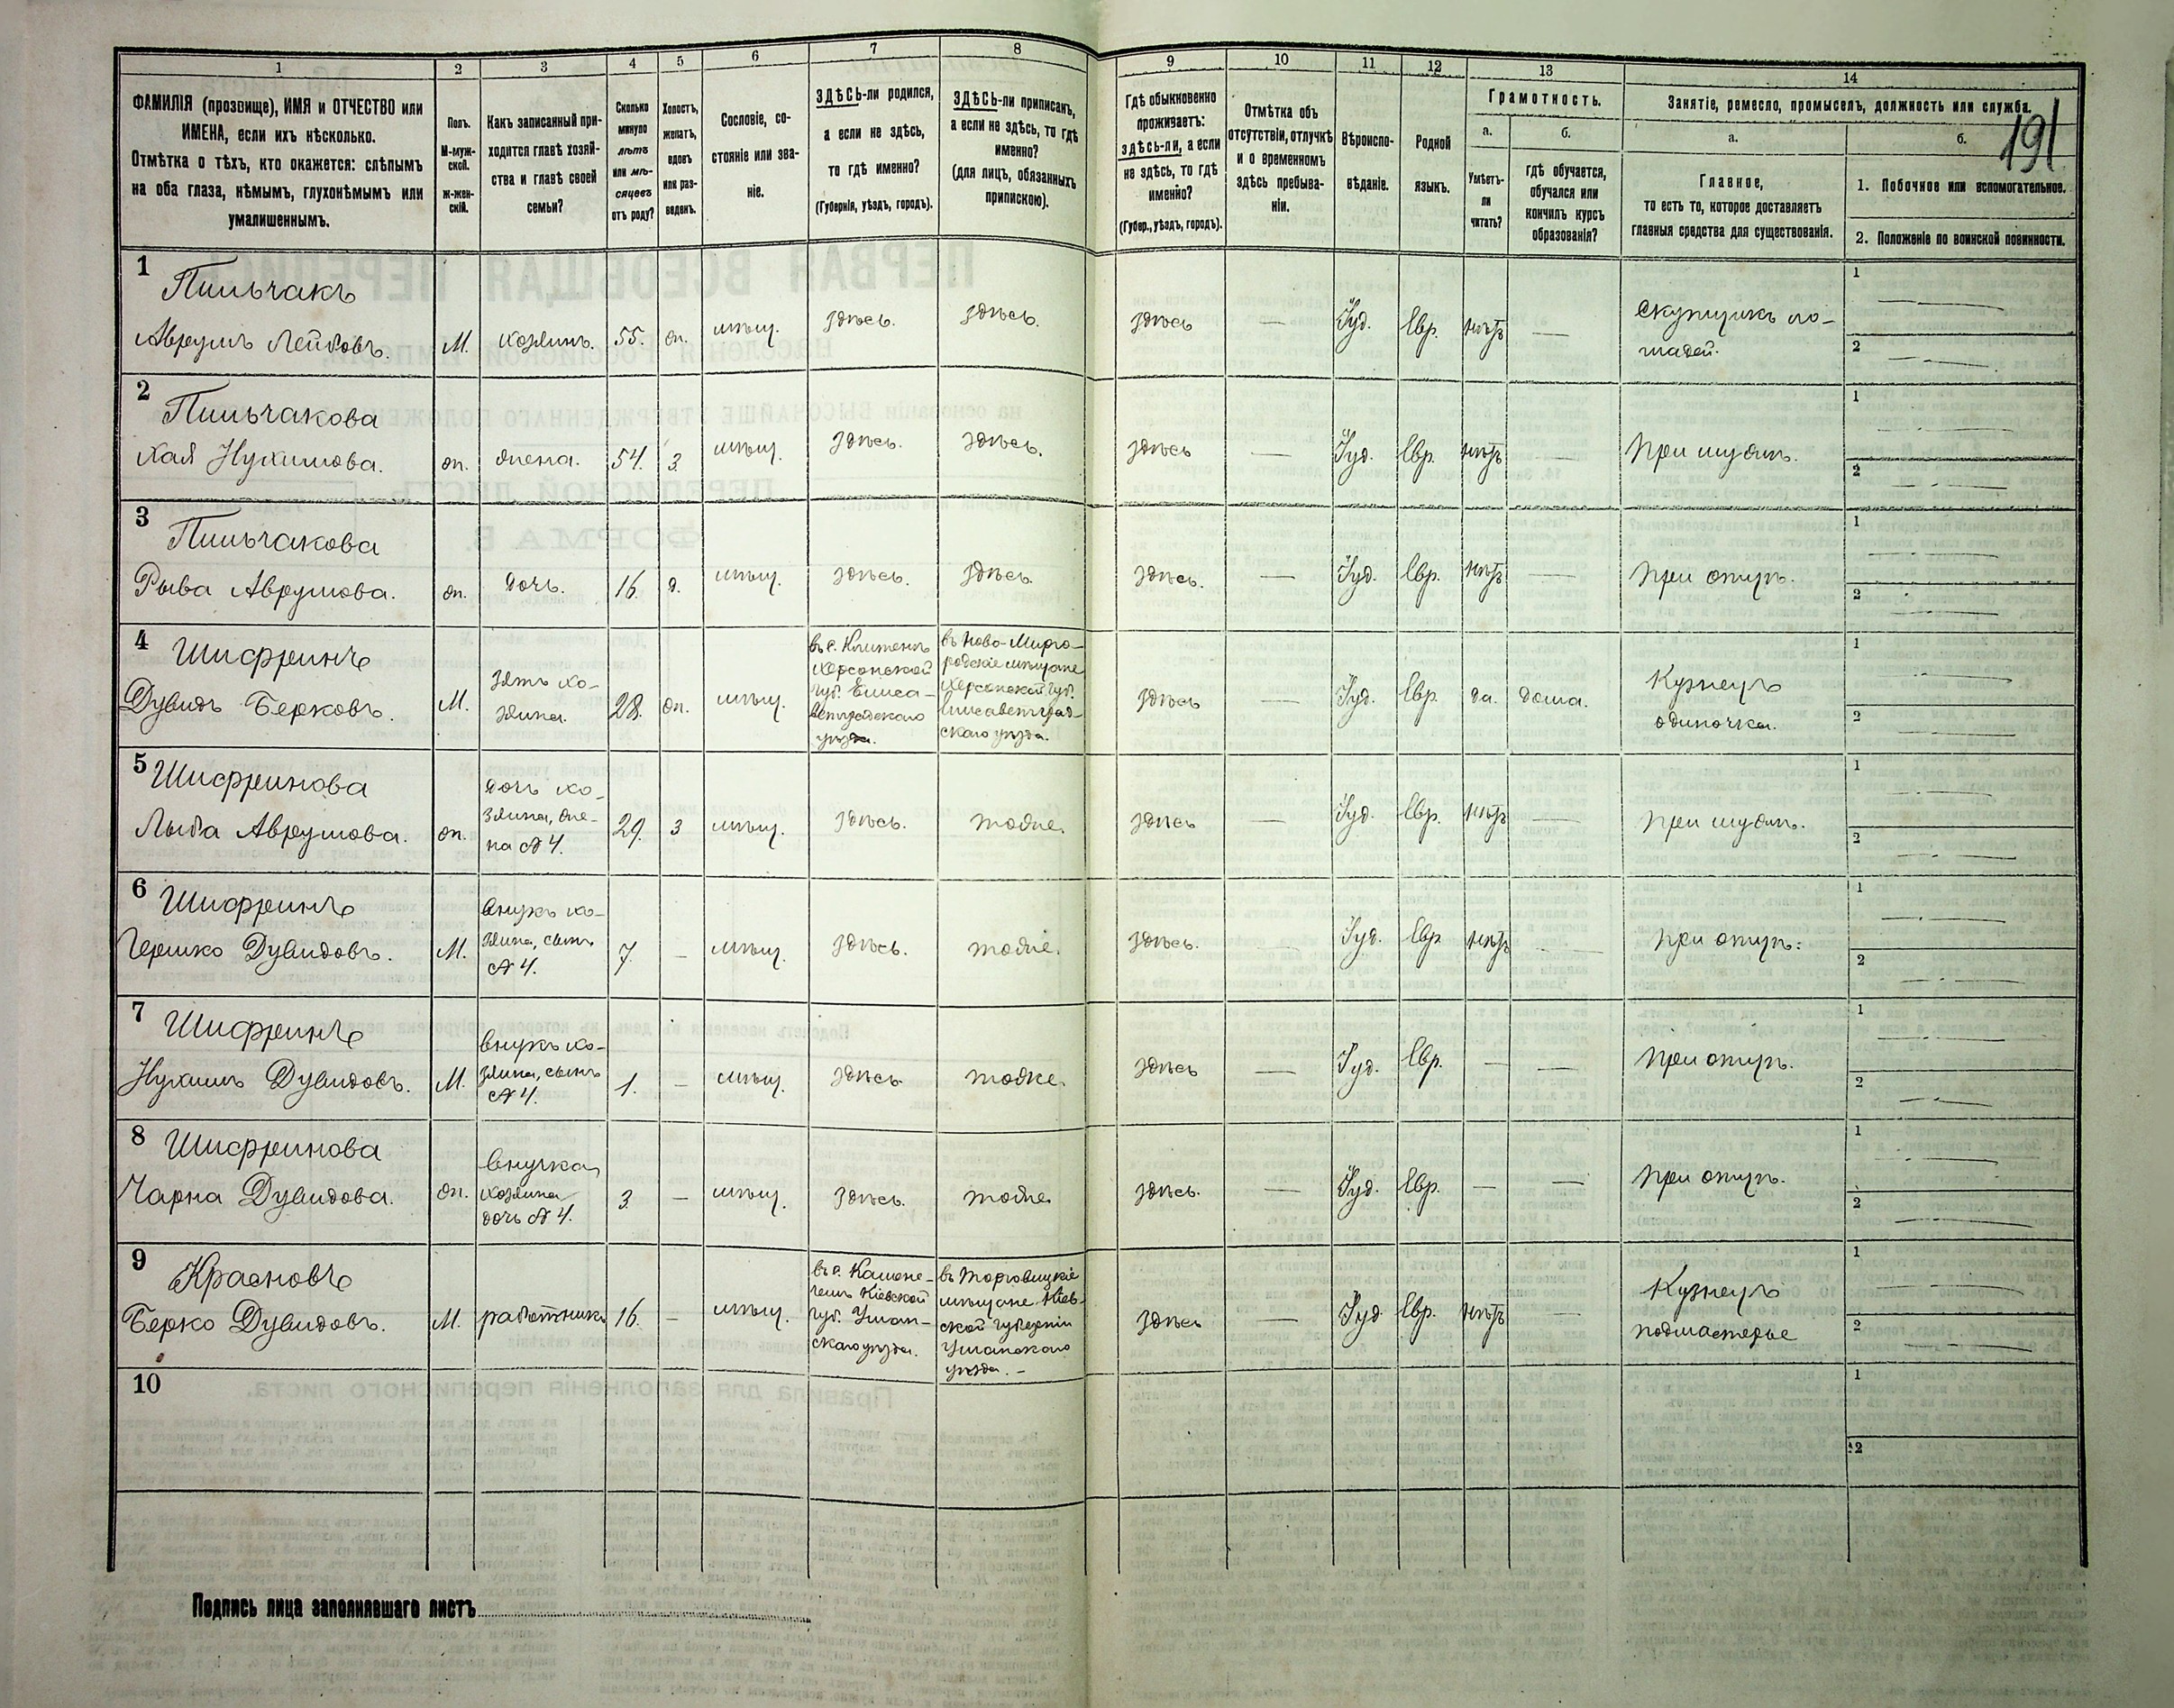 191
1 2 3 4 5 6 7 8 9 10 11 12 13 14
ФАМИЛІЯ (прозвище), ИМЯ и ОТЧЕСТВО или
ИМЕНА, если ихъ нѣсколько.
Отмѣтка о тѣхъ, кто окажется: слѣпымъ
на оба глаза, нѣмымъ, глухонѣмымъ или
умалишеннымъ.
Полъ.
М-муж-
ской.
Ж-жен-
скій.
Какъ записанный при-
ходится главѣ хозяй-
ства и главѣ своей
семьи?
Сколько
минуло
лѣтъ
или мѣ-
сяцевъ
отъ роду?
Холостъ,
женатъ,
вдовъ
или раз-
веденъ.
Сословіе, со-
стояніе или зва-
ніе.
ЗДѢСЬ-ли родился,
а если не здѣсь,
то гдѣ именно?
(Губернія, уѣздъ, городъ).
ЗДѢСЬ-ли приписанъ,
а если не здѣсь, то гдѣ
именно?
(для лицъ, обязанныхъ
припискою).
Гдѣ обыкновенно
проживаетъ:
здѣсь-ли, а если
не здѣсь, то гдѣ
именно?
(Губер., уѣздъ, городъ).
Отмѣтка объ
отсутствіи, отлучкѣ
и о временномъ
здѣсь пребыва-
ніи.
Вѣроиспо-
вѣданіе.
Родной
языкъ.
Грамотность.
а. б.
Умѣетъ-
ли
читать?
гдѣ обучается,
обучался или
кончилъ курсъ
образованія?
Занятіе, ремесло, промыселъ, должность или служба.
а. б.
Главное,
то есть то, которое доставляетъ
главныя средства для существованія.
1. Побочное или вспомогательное.
2. Положеніе по воинской повинности.
1
Пильчакъ
Аврумъ Лейбовъ. М. хозяинъ. 55. ж. мѣщ. здѣсь. здѣсь. здѣсь — Іуд. Евр. нѣтъ —
скупщикъ ло-
шадей.
1 —
2 —
2
Пильчакова
Хая Нухимова. ж. жена. 54. 3. мѣщ. здѣсь. здѣсь. здѣсь — Іуд. Евр. нѣтъ — при мужѣ.
1 —
2 —
3
Пильчакова
Рыва Аврумова. ж. дочь. 16. д. мѣщ. здѣсь. здѣсь. здѣсь. — Іуд. Евр. нѣтъ — при отцѣ.
1 —
2 —
4
Шифринъ
Дувидъ Берковъ. М.
зять хо-
зяина.
28. ж. мѣщ.
Херсонской
губ. Елиса-
ветградскаго
уѣзда.
въ Ново-Мирго-
родскіе мѣщане
Херсонской губ.
Елисаветград-
скаго уѣзда.
здѣсь — Іуд. Евр. да. дома.
Кузнецъ
одиночка.
1 —
2 —
5
Шифринова
Лыба Аврумова. ж.
дочь хо-
зяина, же-
на № 4.
29. 3 мѣщ. здѣсь. тоже. здѣсь — Іуд. Евр. нѣтъ — при мужѣ.
1 —
2 —
6
Шифринъ
Гершко Дувидовъ. М.
внукъ хо-
зяина, сынъ
№ 4.
7. — мѣщ. здѣсь. тоже. здѣсь. — Іуд. Евр. нѣтъ — при отцѣ.
1 —
2 —
7
Шифринъ
Нухимъ Дувидовъ. М.
внукъ хо-
зяина, сынъ
№ 4.
1. — мѣщ. здѣсь. тоже. здѣсь — Іуд. Евр. — — при отцѣ.
1 —
2 —
8
Шифринова
Чарна Дувидова. ж.
внучка
хозяина
дочь № 4.
3. — мѣщ. здѣсь. тоже. здѣсь. — Іуд. Евр. — — при отцѣ.
1 —
2 —
9
Красновъ
Берко Дувидовъ. М. работникъ 16. — мѣщ.
Кіевской
губ. Уман-
скаго уѣзда.
въ Торговицкіе
мѣщане Кіев-
ской губерніи
Уманскаго
уѣзда. —
здѣсь — Іуд. Евр. нѣтъ —
Кузнецъ
подмастерье
1 —
2 —
10
1
2
Подпись лица заполнявшаго листъ